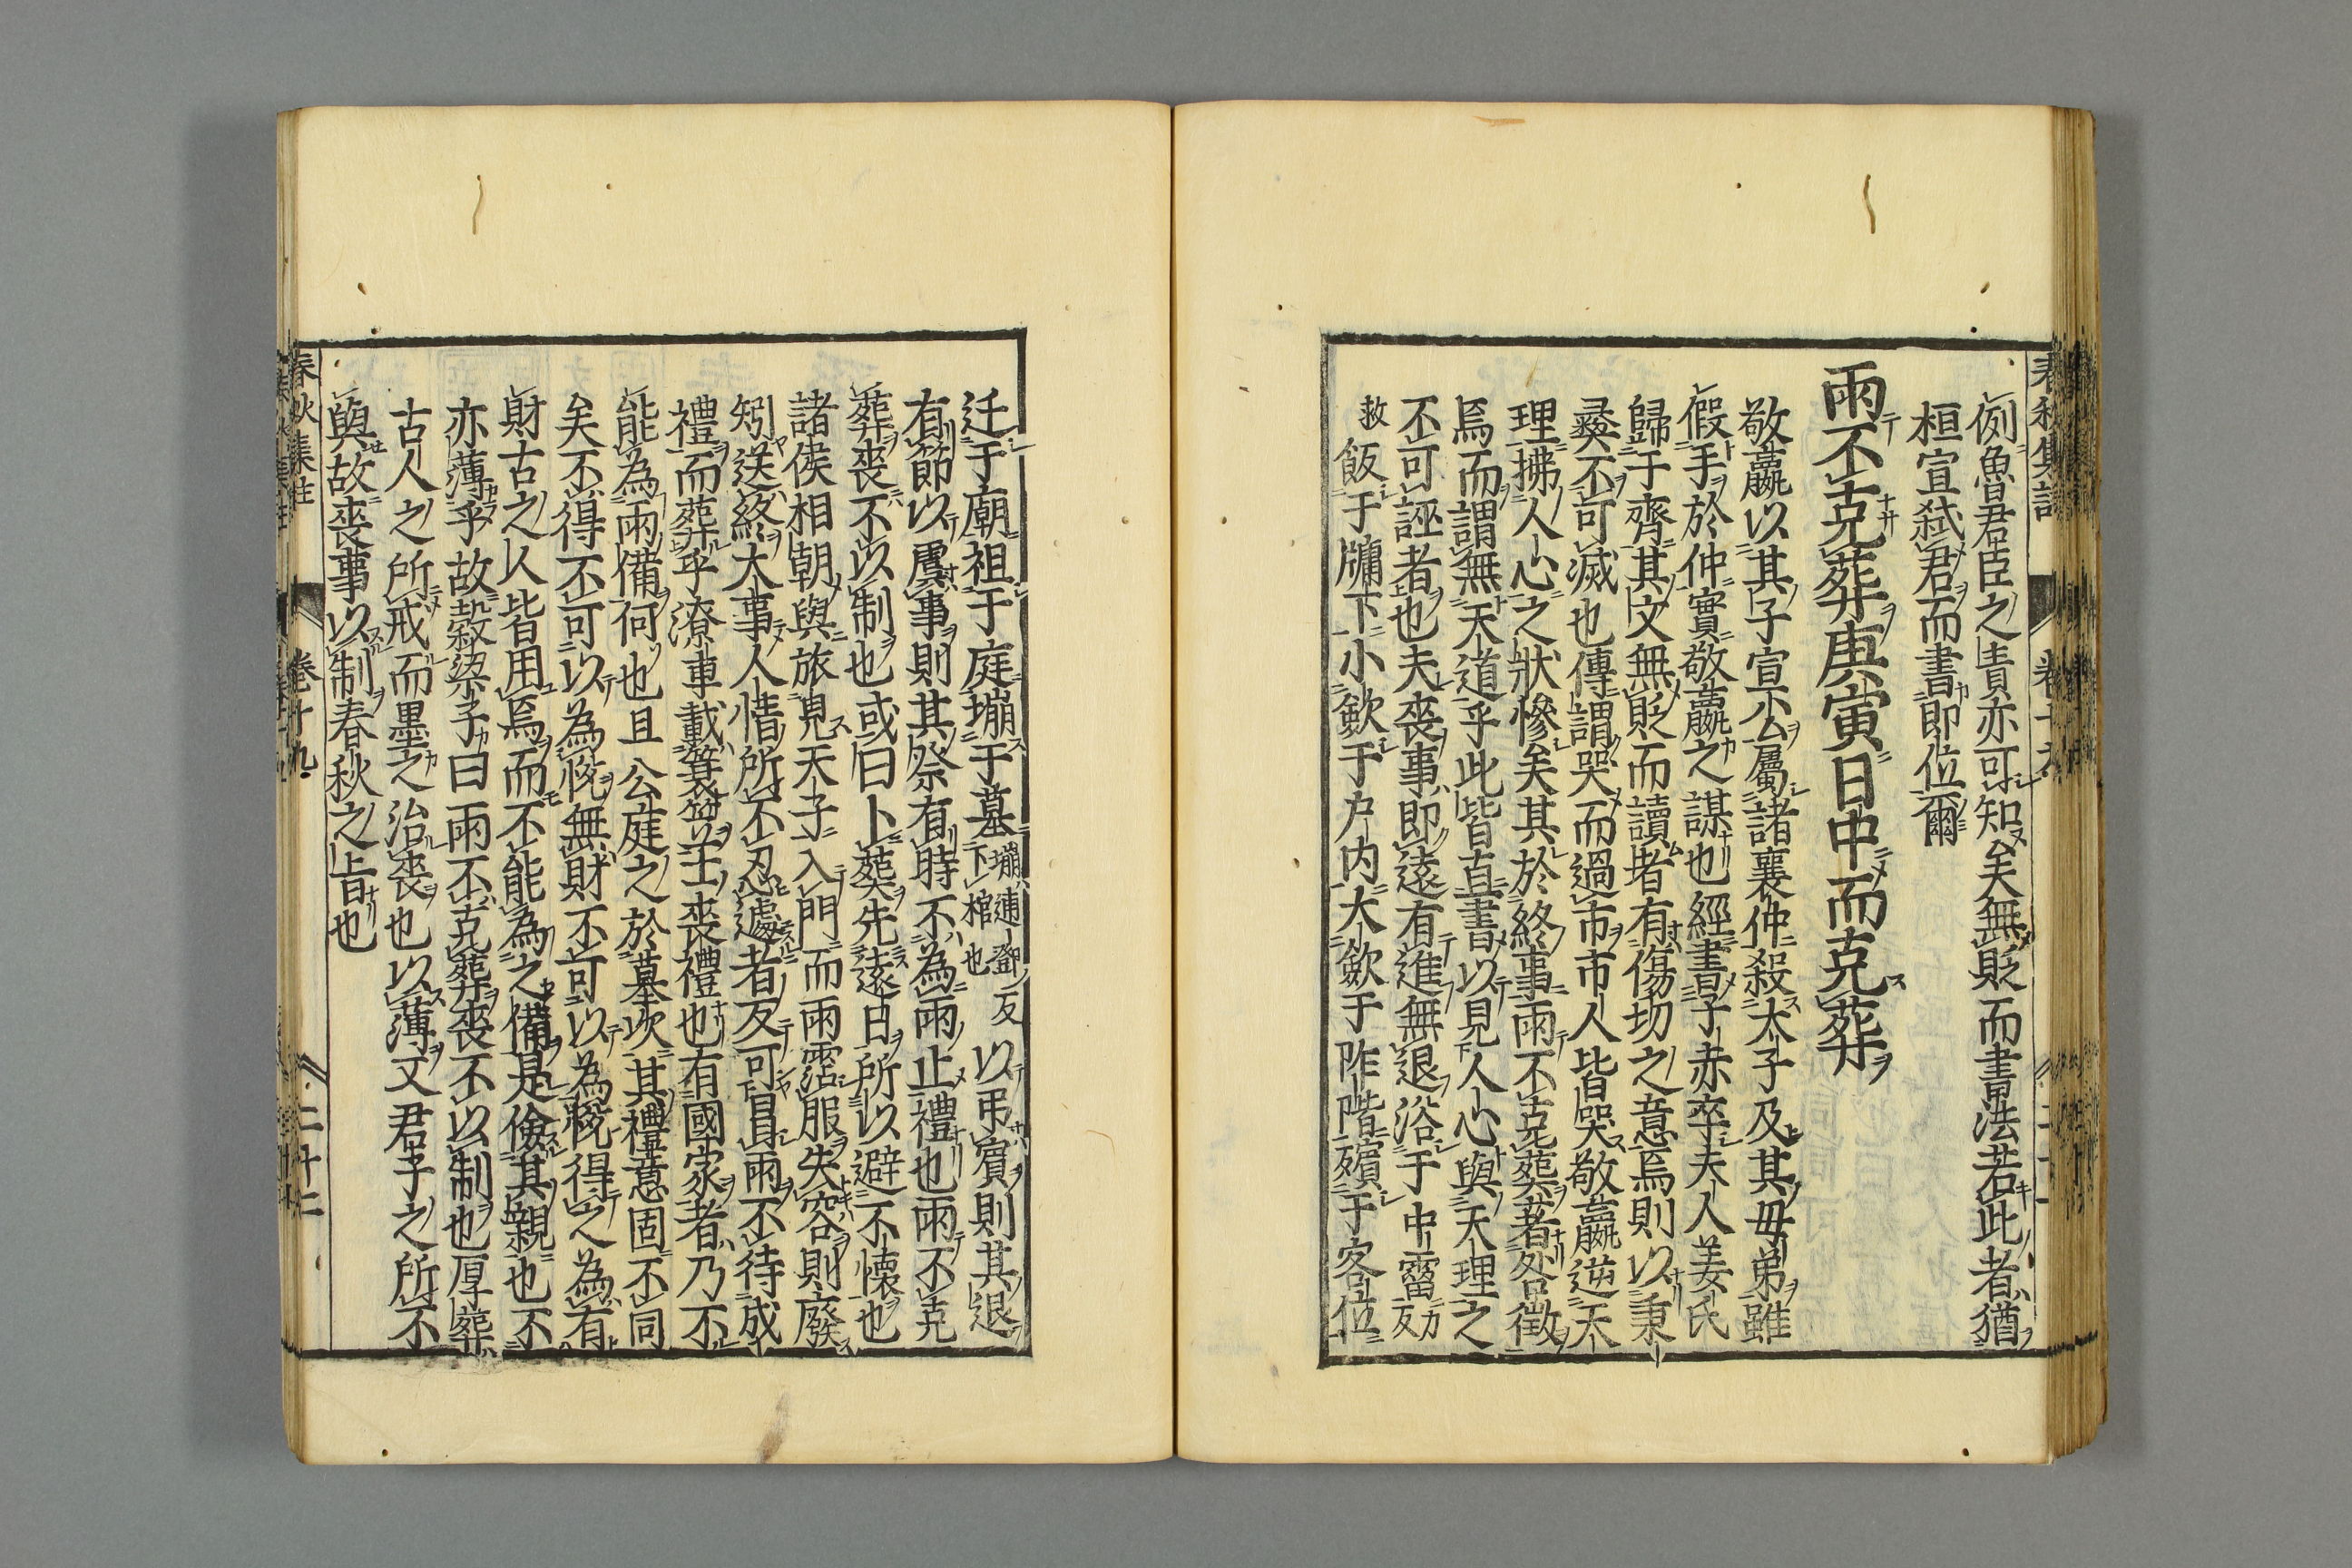 例魯君臣之責亦可知矣無貶而書法若此者猶
桓宣弑君而書即位爾
雨不克葬庚寅日中而克葬
敬嬴以其子宣公屬諸襄仲殺太子及其母弟雖
假手於仲實敬嬴之謀也經書子赤卒夫人姜氏
歸于齊其文無貶而讀者有傷切之意焉則以秉
彝不可滅也傳謂哭而過市市人皆哭敬嬴逆天
理拂人心之狀慘矣其於終事雨不克葬著咎徵
焉而謂無天道乎此皆直書以見人心與天理之
不可誣者也夫喪事即遠有進無退浴于中霤力
救反
飯于牖下小歛于户内大歛于阼階殯于客位
迁于廟祖于庭塴于墓塴逋鄧反
下棺也
以弔賓則其退
有節以虞事則其祭有時不為雨止禮也雨不克
葬喪不以制也或曰卜葬先遠日所以避不懐也
諸侯相朝與旅見天子入門而雨霑服失容則廢
矧送終大事人情所不忍遽者反可冐雨不待成
禮而葬乎潦車載簑笠士喪禮也有國家者乃不
能為雨備何也且公庭之於墓次其禮意固不同
矣不得不可以為悅無財不可以為悅得之為有
財古之人皆用焉而不能為之備是儉其親也不
亦薄乎故穀梁子曰雨不克葬喪不以制也厚葬
古人之所戒而墨之治喪也以薄又君子之所不
與故喪事以制春秋之旨也
春秋集註 卷十九 二十二